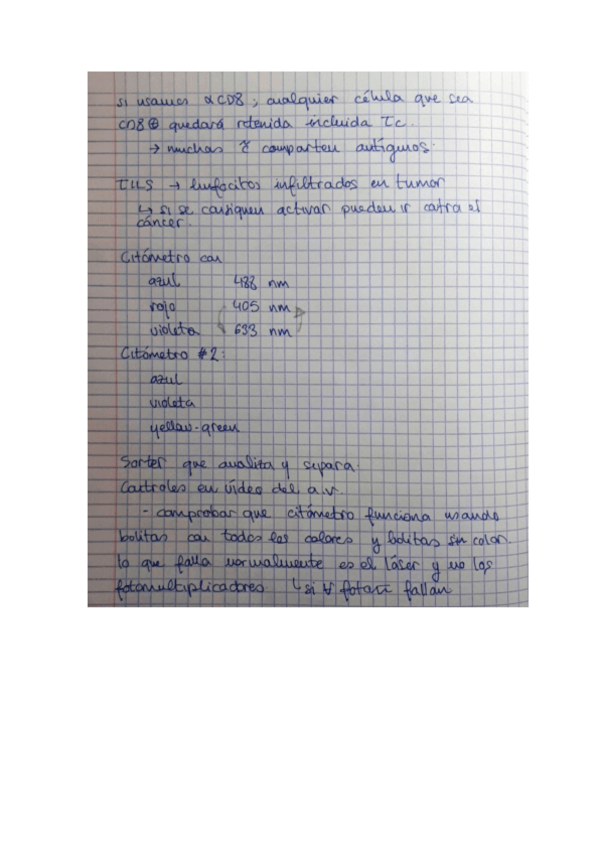 si usamos αCD8, cualquier célula que sea
CD8⊕ quedará retenida incluida Tc.
→ muchas comparten antígenos.
TILS → linfocitos infiltrados en tumor
↳ si se consiguen activar pueden ir contra el
cáncer.
Citómetro con
azul 488 nm
rojo 405 nm
violeta 633 nm
Citómetro #2:
azul
violeta
yellow-green
Sorter que analiza y separa.
Controles en vídeo del a.v.
- comprobar que citómetro funciona usando
bolitas con todos los colores y bolitas sin color.
lo que falla normalmente es el láser y no los
fotomultiplicadores. ↳ si ∀ fallan